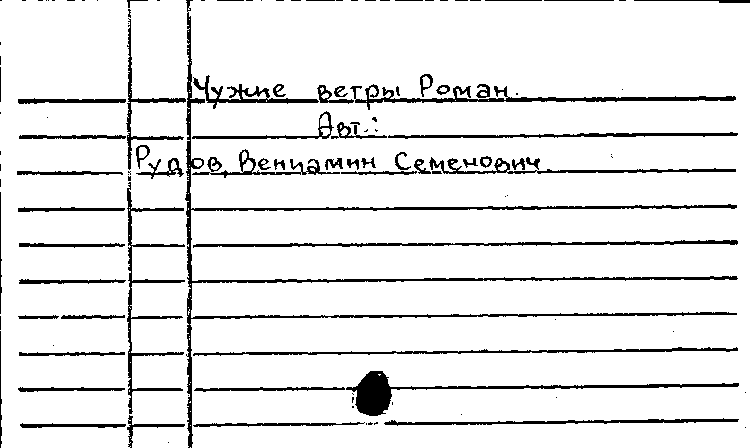 Чужие ветры Роман.
Авт.:
Рудов, Вениамин Семенович.